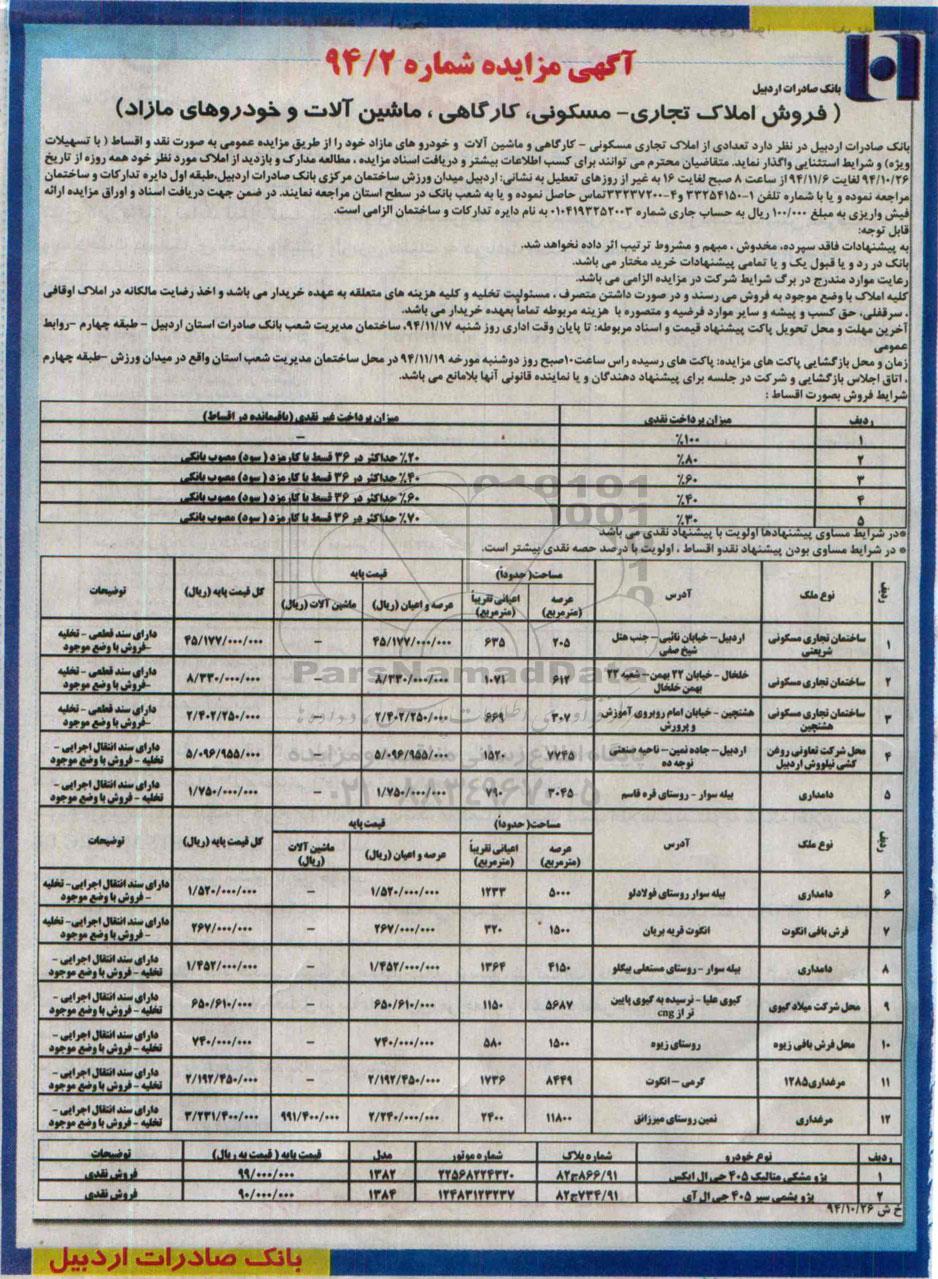 آگهی مزایده شماره ۹۴/۲
بانک صادرات اردبیل
( فروش املاک تجاری- مسکونی، کارگاهی ، ماشین آلات و خودروهای مازاد)
بانک صادرات اردبیل در نظر دارد تعدادی از املاک تجاری مسکونی - کارگاهی و ماشین آلات و خودرو های مازاد خود را از طریق مزایده عمومی به صورت نقد و اقساط ( با تسهیلات
ویژه) و شرایط استثنایی واگذار نماید. متقاضیان محترم می توانند برای کسب اطلاعات بیشتر و دریافت اسناد مزایده ، مطالعه مدارک و بازدید از املاک مورد نظر خود همه روزه از تاریخ
۹۴/۱۰/۲۶ لغایت ۹۴/۱۱/۶ از ساعت ۸ صبح لغایت ۱۶ به غیر از روزهای تعطیل به نشانی: اردبیل میدان ورزش ساختمان مرکزی بانک صادرات اردبیل،طبقه اول دایره تدارکات و ساختمان
مراجعه نموده و یا با شماره تلفن ۱-۳۳۲۵۴۱۵۰ و۴-۳۳۲۳۷۲۰۰تماس حاصل نموده و یا به شعب بانک در سطح استان مراجعه نمایند. در ضمن جهت دریافت اسناد و اوراق مزایده ارائه
فیش واریزی به مبلغ ۱۰۰/۰۰۰ ریال به حساب جاری شماره ۰۱۰۴۱۹۳۲۵۲۰۰۳ به نام دایره تدارکات و ساختمان الزامی است.
قابل توجه:
به پیشنهادات فاقد سپرده، مخدوش ، مبهم و مشروط ترتیب اثر داده نخواهد شد.
بانک در رد و یا قبول یک و یا تمامی پیشنهادات خرید مختار می باشد.
رعایت موارد مندرج در برگ شرایط شرکت در مزایده الزامی می باشد.
کلیه املاک با وضع موجود به فروش می رسند و در صورت داشتن متصرف ، مسئولیت تخلیه و کلیه هزینه های متعلقه به عهده خریدار می باشد و اخذ رضایت مالکانه در املاک اوقافی
، سرقفلی، حق کسب و پیشه و سایر موارد فرضیه و متصوره با هزینه مربوطه تماماً بعهده خریدار می باشد.
آخرین مهلت و محل تحویل پاکت پیشنهاد قیمت و اسناد مربوطه: تا پایان وقت اداری روز شنبه ۹۴/۱۱/۱۷، ساختمان مدیریت شعب بانک صادرات استان اردبیل - طبقه چهارم -روابط
عمومی
زمان و محل بازگشایی پاکت های مزایده: پاکت های رسیده راس ساعت۱۰صبح روز دوشنبه مورخه ۹۴/۱۱/۱۹ در محل ساختمان مدیریت شعب استان واقع در میدان ورزش -طبقه چهارم
، اتاق اجلاس بازگشایی و شرکت در جلسه برای پیشنهاد دهندگان و یا نماینده قانونی آنها بلامانع می باشد.
شرایط فروش بصورت اقساط :
ردیف میزان پرداخت نقدی میزان پرداخت غیر نقدی (باقیمانده در اقساط)
۱ ٪۱۰۰ -
۲ ٪۸۰ ٪۲۰ حداکثر در ۳۶ قسط با کارمزد ( سود) مصوب بانکی
۳ ٪۶۰ ٪۴۰ حداکثر در ۳۶ قسط با کارمزد ( سود) مصوب بانکی
۴ ٪۴۰ ٪۶۰ حداکثر در ۳۶ قسط با کارمزد ( سود) مصوب بانکی
۵ ٪۳۰ ٪۷۰ حداکثر در ۳۶ قسط با کارمزد ( سود) مصوب بانکی
*در شرایط مساوی پیشنهادها اولویت با پیشنهاد نقدی می باشد
* در شرایط مساوی بودن پیشنهاد نقدو اقساط ، اولویت با درصد حصه نقدی بیشتر است.
ردیف نوع ملک آدرس مساحت( حدوداً) عرصه (مترمربع) اعیانی تقریباً (مترمربع) قیمت پایه عرصه و اعیان (ریال) ماشین آلات (ریال) کل قیمت پایه (ریال) توضیحات
۱ ساختمان تجاری مسکونی شریعتی اردبیل- خیابان نائبی- جنب هتل شیخ صفی ۲۰۵ ۶۳۵ ۴۵/۱۷۷/۰۰۰/۰۰۰ - ۴۵/۱۷۷/۰۰۰/۰۰۰ دارای سند قطعی - تخلیه -فروش با وضع موجود
۲ ساختمان تجاری مسکونی خلخال - خیابان ۲۲ بهمن- شعبه ۲۲ بهمن خلخال ۶۱۲ ۱۰۷۱ ۸/۳۳۰/۰۰۰/۰۰۰ - ۸/۳۳۰/۰۰۰/۰۰۰ دارای سند قطعی - تخلیه -فروش با وضع موجود
۳ ساختمان تجاری مسکونی هشتجین هشتجین - خیابان امام روبروی آموزش و پرورش ۳۰۷ ۶۶۹ ۲/۴۰۲/۲۵۰/۰۰۰ - ۲/۴۰۲/۲۵۰/۰۰۰ دارای سند قطعی - تخلیه -فروش با وضع موجود
۴ محل شرکت تعاونی روغن کشی نیلووش اردبیل اردبیل - جاده نمین- ناحیه صنعتی نوجه ده ۷۷۴۵ ۱۵۲۰ ۵/۰۹۶/۹۵۵/۰۰۰ - ۵/۰۹۶/۹۵۵/۰۰۰ دارای سند انتقال اجرایی - تخلیه - فروش با وضع موجود
۵ دامداری بیله سوار - روستای قره قاسم ۳۰۴۵ ۷۹۰ ۱/۷۵۰/۰۰۰/۰۰۰ - ۱/۷۵۰/۰۰۰/۰۰۰ دارای سند انتقال اجرایی - تخلیه - فروش با وضع موجود
ردیف نوع ملک آدرس مساحت( حدوداً) عرصه (مترمربع) اعیانی تقریباً (مترمربع) قیمت پایه عرصه و اعیان (ریال) ماشین آلات (ریال) کل قیمت پایه (ریال) توضیحات
۶ دامداری بیله سوار روستای فولادلو ۵۰۰۰ ۱۲۳۳ ۱/۵۲۰/۰۰۰/۰۰۰ - ۱/۵۲۰/۰۰۰/۰۰۰ دارای سند انتقال اجرایی- تخلیه - فروش با وضع موجود
۷ فرش بافی انگوت انگوت قریه بریان ۱۵۰۰ ۳۲۰ ۲۶۷/۰۰۰/۰۰۰ - ۲۶۷/۰۰۰/۰۰۰ دارای سند انتقال اجرایی- تخلیه - فروش با وضع موجود
۸ دامداری بیله سوار - روستای مستعلی بیگلو ۴۱۵۰ ۱۳۶۴ ۱/۴۵۲/۰۰۰/۰۰۰ - ۱/۴۵۲/۰۰۰/۰۰۰ دارای سند انتقال اجرایی - تخلیه - فروش با وضع موجود
۹ محل شرکت میلاد گیوی گیوی علیا - نرسیده به گیوی پایین تر از cng ۵۶۸۷ ۱۱۵۰ ۶۵۰/۶۱۰/۰۰۰ - ۶۵۰/۶۱۰/۰۰۰ دارای سند انتقال اجرایی - تخلیه - فروش با وضع موجود
۱۰ محل فرش بافی زیوه روستای زیوه ۱۵۰۰ ۵۸۰ ۷۴۰/۰۰۰/۰۰۰ - ۷۴۰/۰۰۰/۰۰۰ دارای سند انتقال اجرایی - تخلیه - فروش با وضع موجود
۱۱ مرغداری۱۲۸۵ گرمی - انگوت ۸۴۴۹ ۱۷۳۶ ۲/۱۹۲/۴۵۰/۰۰۰ - ۲/۱۹۲/۴۵۰/۰۰۰ دارای سند انتقال اجرایی - تخلیه - فروش با وضع موجود
۱۲ مرغداری نمین روستای میرزانق ۱۱۸۰۰ ۲۴۰۰ ۲/۲۴۰/۰۰۰/۰۰۰ ۹۹۱/۴۰۰/۰۰۰ ۳/۲۳۱/۴۰۰/۰۰۰ دارای سند انتقال اجرایی - تخلیه - فروش با وضع موجود
ردیف نوع خودرو شماره پلاک شماره موتور مدل قیمت پایه ( قیمت به ریال) توضیحات
۱ پژو مشکی متالیک ۴۰۵ جی ال ایکس ۸۲ج۸۶۶/۹۱ ۲۲۵۶۸۲۲۴۳۲۰ ۱۳۸۲ ۹۹/۰۰۰/۰۰۰ فروش نقدی
۲ پژو یشمی سیر ۴۰۵ جی ال آی ۸۲ج۷۳۴/۹۱ ۱۲۴۸۳۱۲۳۲۳۷ ۱۳۸۴ ۹۰/۰۰۰/۰۰۰ فروش نقدی
خ ش ۹۴/۱۰/۲۶
بانک صادرات اردبیل
ParsNamadData